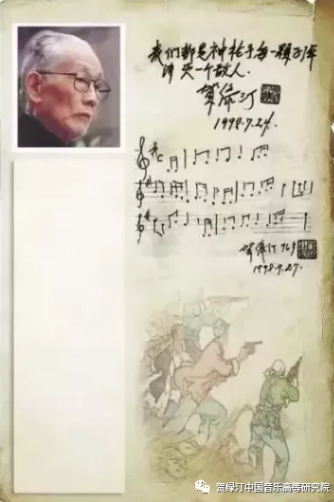 我们都是神枪手每一颗子弹
消灭一个敌人.
贺绿汀
1998.7.24.
贺绿汀
1998.7.27.
贺绿汀中国音乐高等研究院